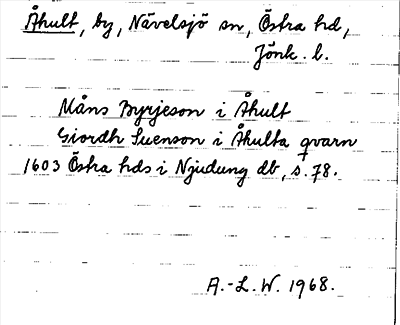 Åhult, by, Nävelsjö sn, Östra hd,
Jönk. l.
Måns Byrjeson i Åhult
Giordh Suenson i Åhulta qvarn
1603 Östra hds i Njudung db, s. 78.
A.-L.W. 1968.